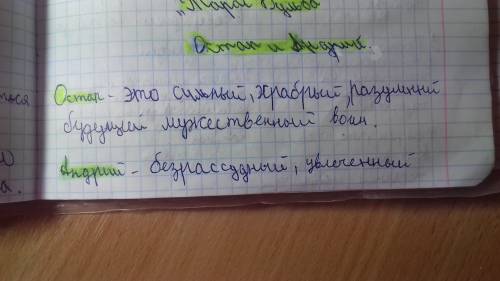 „Тарас Бульба"
Остап и Андрий.
Остап - это сильный, храбрый, разумний
будущей мужественный воин.
Андрий - безрассудный, увлеченный